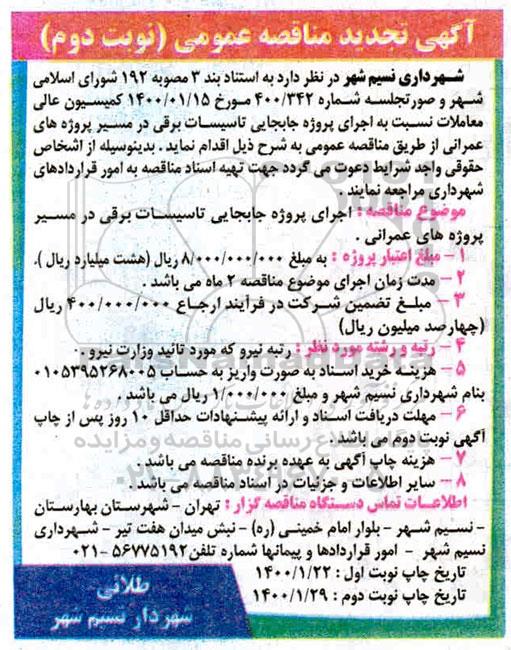 آگهی تجدید مناقصه عمومی (نوبت دوم)
شهرداری نسیم شهر در نظر دارد به استناد بند ۳ مصوبه ۱۹۲ شورای اسلامی
شهر و صورتجلسه شماره ۴۰۰/۳۴۲ مورخ ۱۴۰۰/۰۱/۱۵ کمیسیون عالی
معاملات نسبت به اجرای پروژه جابجایی تاسیسات برقی در مسیر پروژه های
عمرانی از طریق مناقصه عمومی به شرح ذیل اقدام نماید . بدینوسیله از اشخاص
حقوقی واجد شرایط دعوت می گردد جهت تهیه اسناد مناقصه به امور قراردادهای
شهرداری مراجعه نمایند .
موضوع مناقصه : اجرای پروژه جابجایی تاسیسات برقی در مسیر
پروژه های عمرانی .
۱- مبلغ اعتبار پروژه : به مبلغ ۸/۰۰۰/۰۰۰/۰۰۰ ریال (هشت میلیارد ریال ).
۲- مدت زمان اجرای موضوع مناقصه ۲ ماه می باشد .
۳- مبلغ تضمین شرکت در فرآیند ارجاع ۴۰۰/۰۰۰/۰۰۰ ریال
(چهارصد میلیون ریال)
۴- رتبه و رشته مورد نظر : رتبه نیرو که مورد تائید وزارت نیرو .
۵- هزینه خرید اسناد به صورت واریز به حساب ۰۱۰۵۳۹۵۲۶۸۰۰۵
بنام شهرداری نسیم شهر و مبلغ ۱/۰۰۰/۰۰۰ ریال می باشد .
۶- مهلت دریافت اسناد و ارائه پیشنهادات حداقل ۱۰ روز پس از چاپ
آگهی نوبت دوم می باشد .
۷- هزینه چاپ آگهی به عهده برنده مناقصه می باشد .
۸- سایر اطلاعات و جزئیات در اسناد مناقصه می باشد .
اطلاعات تماس دستگاه مناقصه گزار : تهران - شهرستان بهارستان
- نسیم شهر - بلوار امام خمینی (ره) - نبش میدان هفت تیر - شهرداری
نسیم شهر - امور قراردادها و پیمانها شماره تلفن ۵۶۷۷۵۱۹۲ -۰۲۱
تاریخ چاپ نوبت اول : ۱۴۰۰/۱/۲۲
تاریخ چاپ نوبت دوم : ۱۴۰۰/۱/۲۹
طلائی
شهردار نسیم شهر